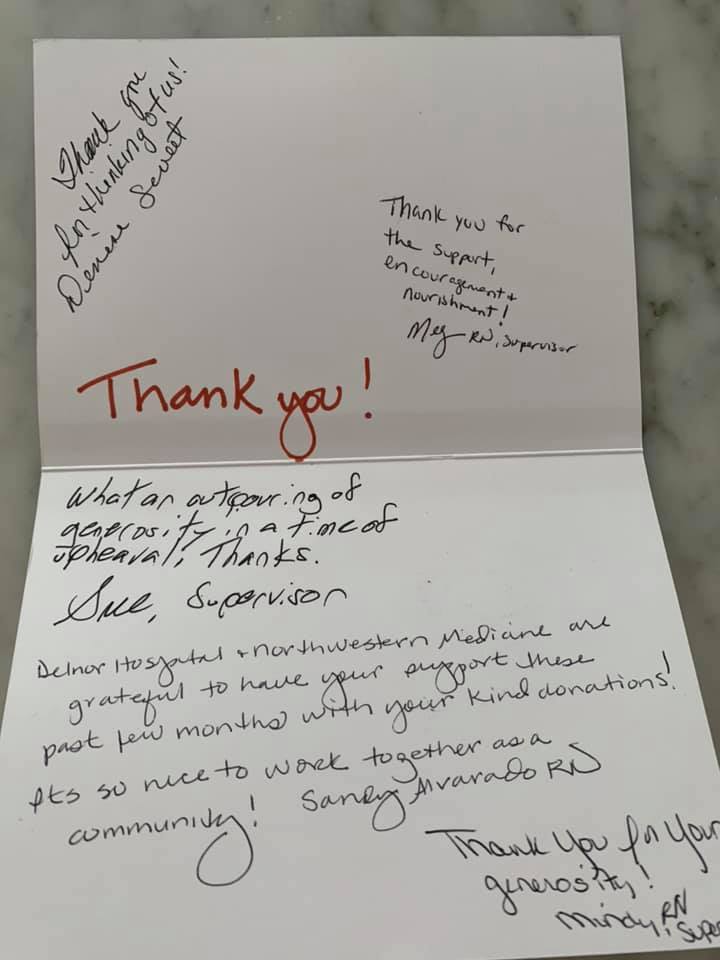 Thank you
for thinking of us!
Denise Sweet
Thank you for
the support,
encouragement +
nourishment!
Meg RN, Supervisor
Thank you!
What an outpouring of
generosity in a time of
upheaval; Thanks.
Sue, Supervisor
Delnor Hospital + Northwestern Medicine are
grateful to have your support these
past few months with your kind donations!
Its so nice to work together as a
community! Sandy Alvarado RN
Thank You for Your
generosity!
Mindy, RN
Super